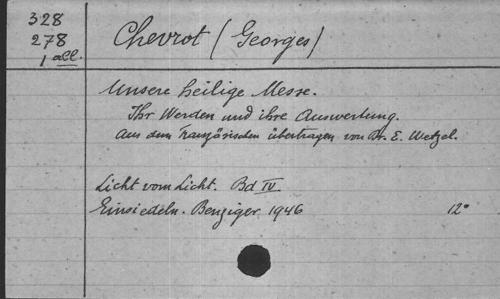 328
278
1 all.
Chevrot (Georges)
Unsere heilige Messe.
Ihr Werden und ihre Auswertung.
Aus dem Französischen übertragen von Dr. E. Wetzel.
Licht vom Licht. Bd IV.
Einsiedeln. Benziger 1946 12°